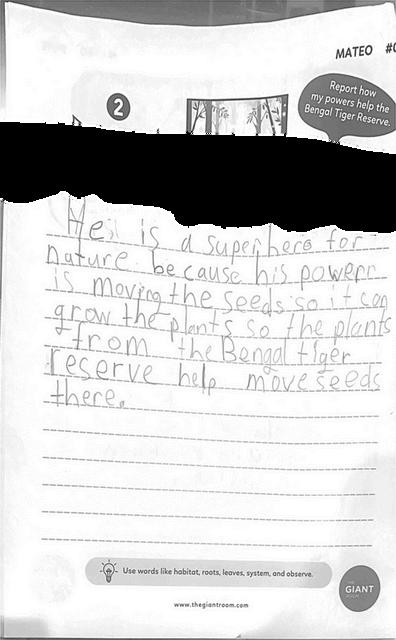 MATEO #0
2
Report how
my powers help the
Bengal Tiger Reserve.
is a superhero for
nature because his powerr
is moving the seeds so it can
grow the plants so the plants
from the Bengal tiger
reserve help move seeds
there.
Use words like habitat, roots, leaves, system, and observe.
THE
GIANT
ROOM
www.thegiantroom.com